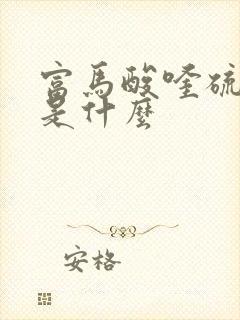 富马酸喹硫
是什麼
安格